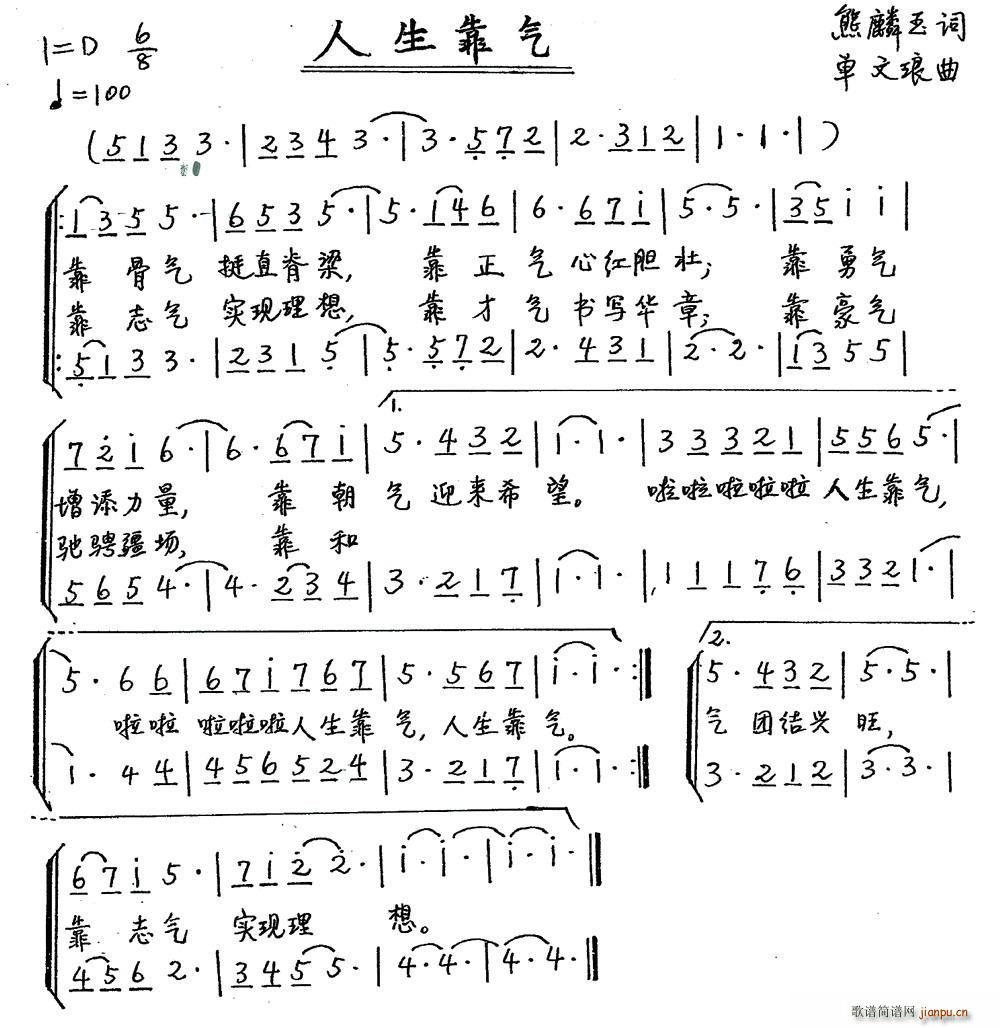 人生靠气
1=D 6/8
♩=100
熊麟玉词
单文琅曲
(5133·|2343·|3·572|2·312|1·1·|)
1355 5·|6535·|5·146|6·671|5·5·|3511|
靠骨气挺直脊梁, 靠正气心红胆壮; 靠勇气
靠志气实现理想, 靠才气书写华章; 靠豪气
5133·|2315|5·572|2·431|2·2·|1355|
1.
7216·|6·671|5·432|1·1·|33321|5565·|
增添力量, 靠朝气迎来希望。 啦啦啦啦啦人生靠气,
驰骋疆场, 靠和
5654·|4·234|3·217|1·1·|11176|3321·|
5·66|671767|5·567|1·1·:|
啦啦啦啦啦人生靠气,人生靠气。
1·44|456524|3·217|1·1·:|
2.
5·432|5·5·|
气团结兴旺,
3·212|3·3·|
6715·|7122·|1·1·|1·1·|
靠志气实现理想。
4562·|3455·|4·4·|4·4·|
歌谱简谱网 jianpu.cn